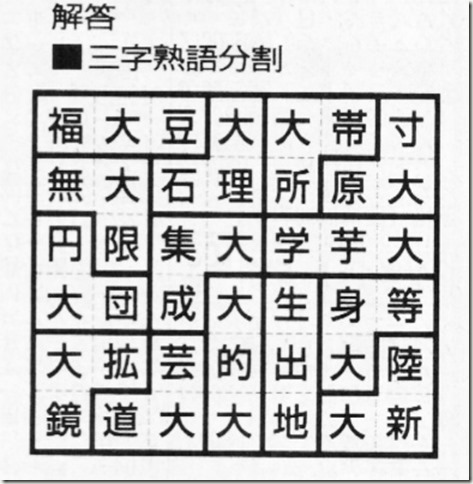 解答
■三字熟語分割
福大豆大大帯寸
無大石理所原大
円限集大学芋大
大団成大生身等
大拡芸的出大陸
鏡道大大地大新